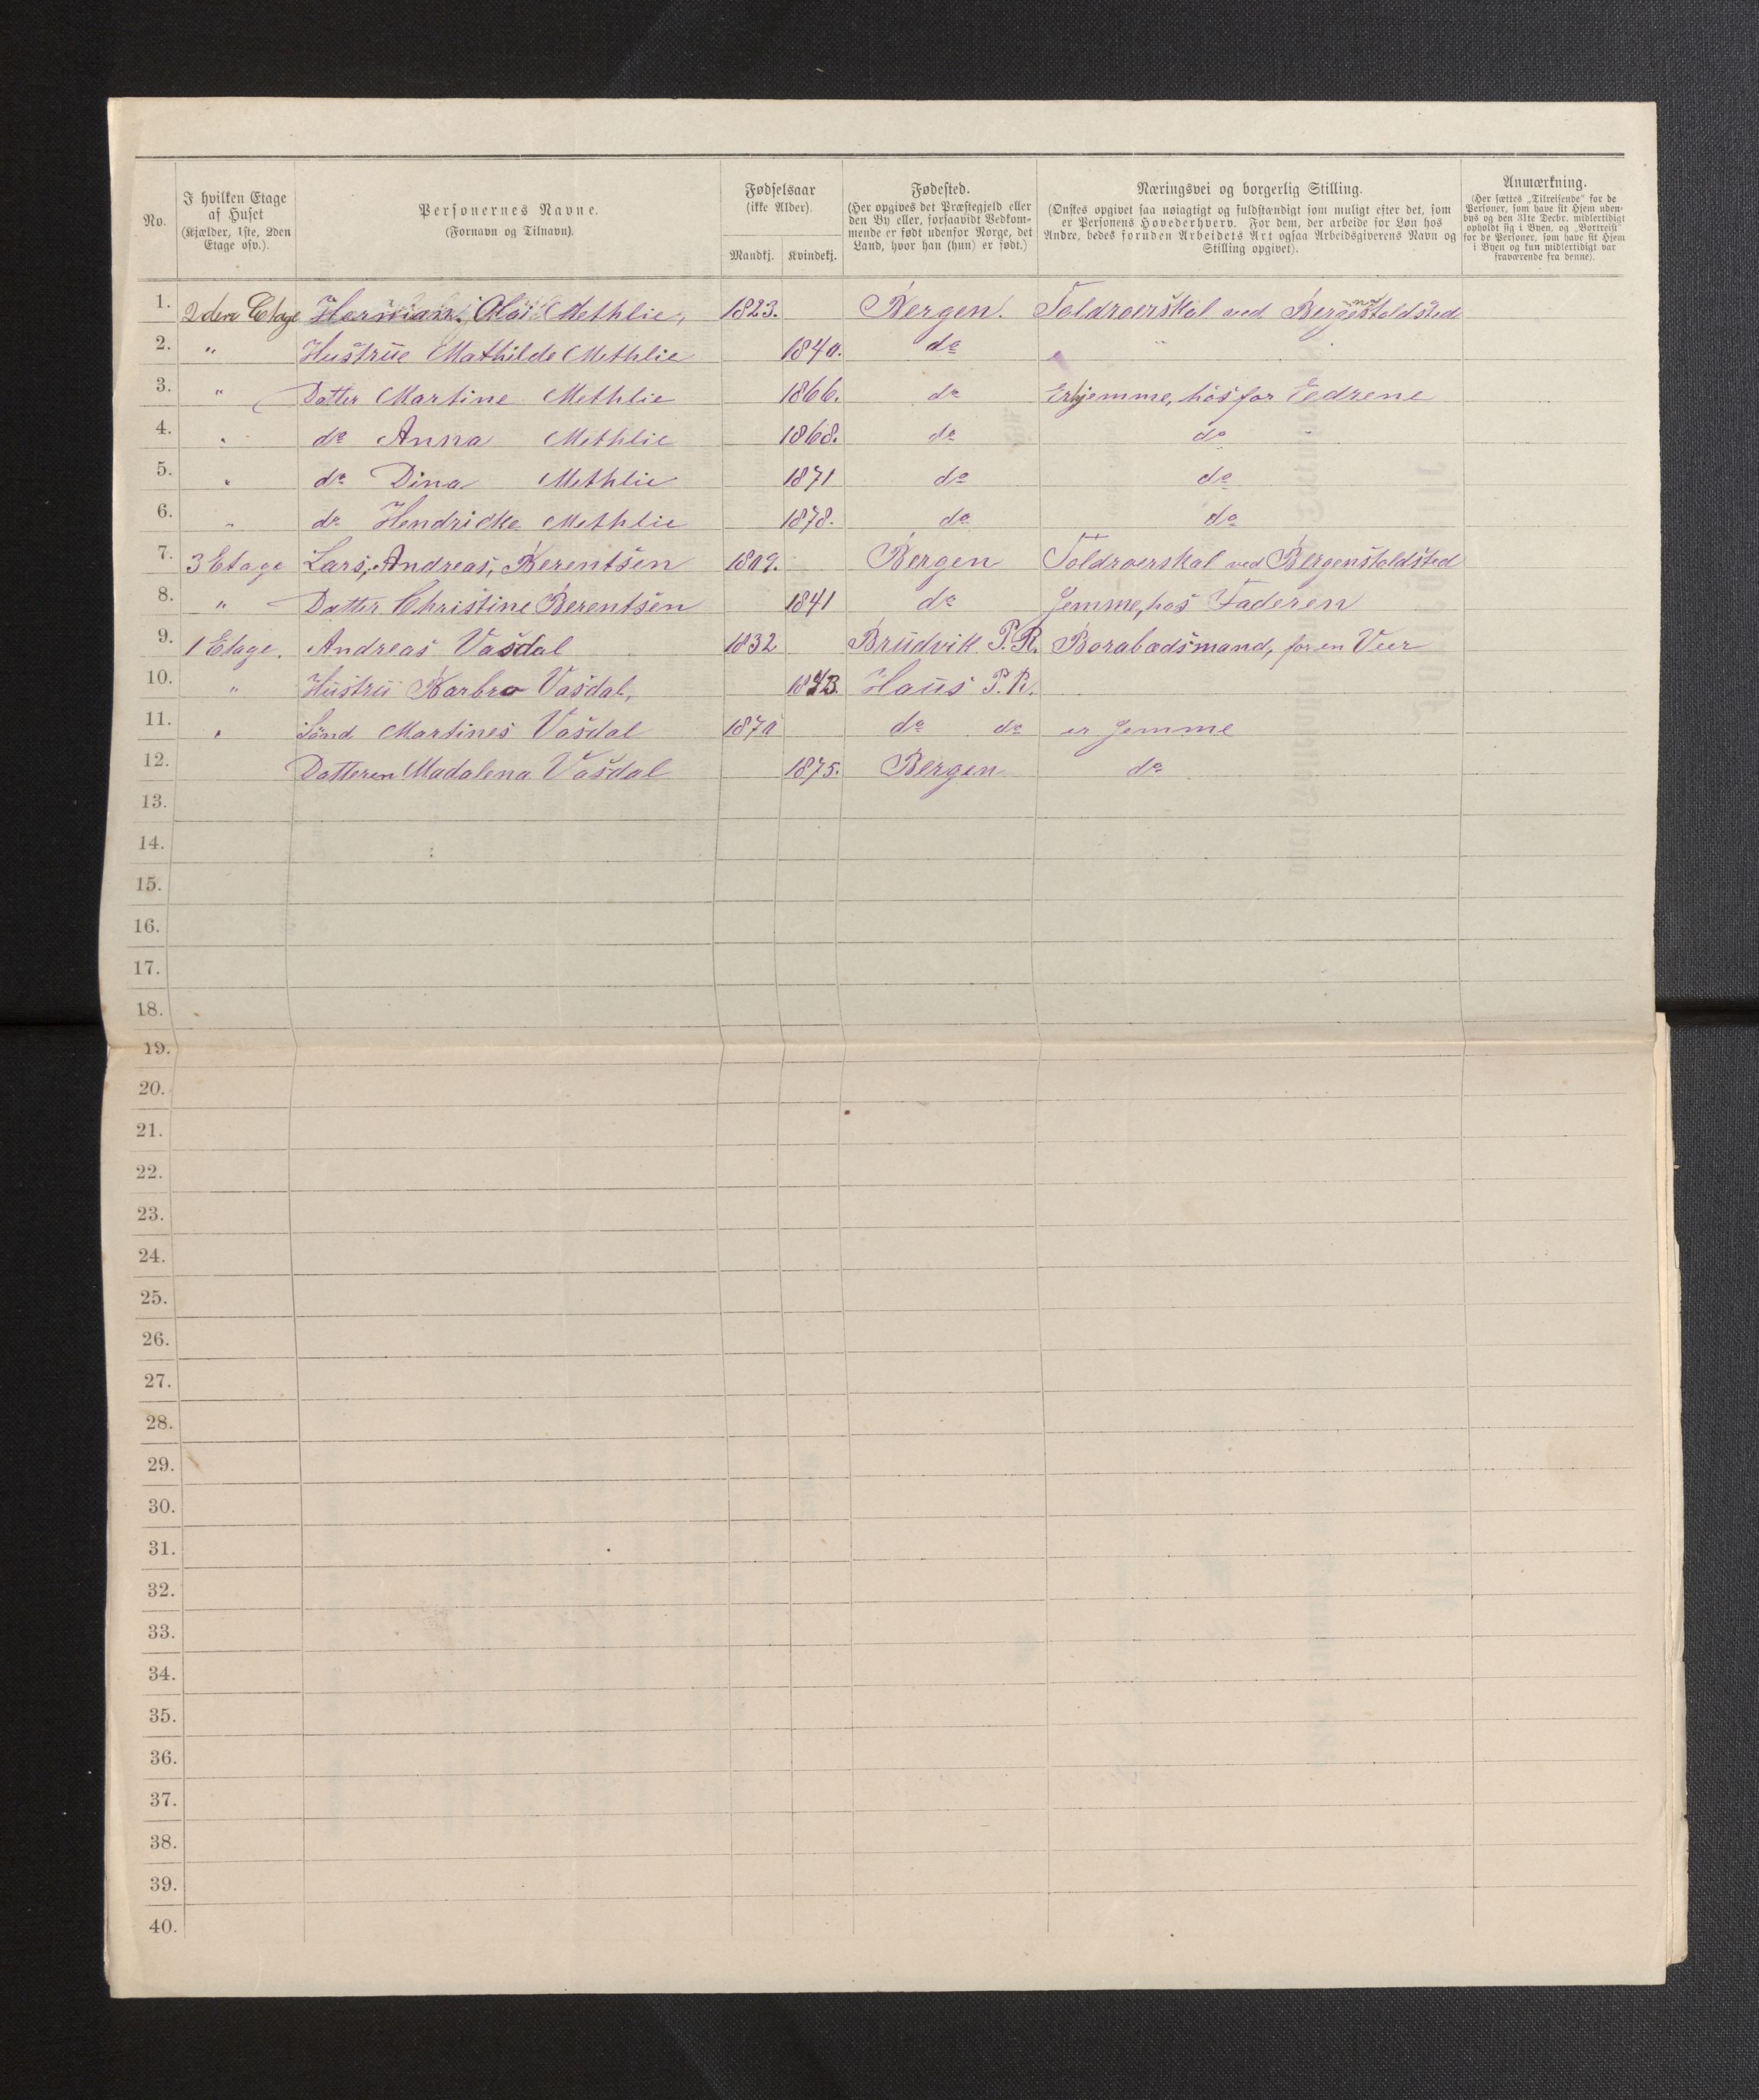 No.
I hvilken Etage
af Huset
(Kjælder, 1ste, 2den
Etage osv.).
Personernes Navne.
(Fornavn og Tilnavn).
Fødselsaar
(ikke Alder).
Mandkj. Kvindekj.
Fødested.
(Her opgives det Præstegjeld eller
den By eller, forsaavidt Vedkom-
mende er født udenfor Norge, det
Land, hvor han (hun) er født.)
Næringsvei og borgerlig Stilling.
(Ønskes opgivet saa nøiagtigt og fuldstændigt som muligt efter det, som
er Personens Hovederhverv. For dem, der arbeide for Løn hos
Andre, bedes foruden Arbeidets Art ogsaa Arbeidsgiverens Navn og
Stilling opgivet).
Anmærkning.
(Her sættes „Tilreisende" for de
Personer, som have sit Hjem uden-
bys og den 31te Decbr. midlertidigt
opholdt sig i Byen, og „Bortreist"
for de Personer, som have sit Hjem
i Byen og kun midlertidigt var
fraværende fra denne).
1. 2den Etage Herman. Olai Methlie, 1823. Bergen. Toldroerskal ved Bergenstoldsted
2. " Hustrue Mathilde Methlie 1840. do "
3. " Datter Martine Methlie 1866. do Erhjemme, hos for Eedrene
4. " do Anna Methlie 1868. do do
5. " do Dina Methlie 1871 do do
6. " do Hendricke Methlie 1878. do do
7. 3 Etage Lars, Andreas, Berentsen 1809. Bergen Toldroerskal ved Bergenstoldsted
8. " Datter Christine Berentsen 1841 do Jemme, hos Faderen
9. 1 Etage. Andreas Vasdal 1832 Brudvik P.R. Borabædsmand, for en Veer
10. " Hustru Barbro Vasdal, Haus P.R.
11. " Sønd Martines Vasdal 1870 do do er Jemme
12. Datteren Madalena Vasdal 1875. Bergen do
13.
14.
15.
16.
17.
18.
19.
20.
21.
22.
23.
24.
25.
26.
27.
28.
29.
30.
31.
32.
33.
34.
35.
36.
37.
38.
39.
40.